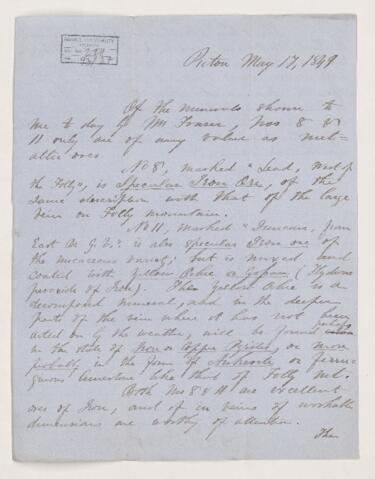 Pictou May 17, 1849
Of the minerals shown to
me to day by Mr Fraser, Nos 8 &
11 only are of any value as met-
allic ores.
No 8, marked "Lead, West of
the Folly", is Specular Iron Ore, of the
same description with that of the large
vein on Folly mountain.
No 11, marked "Duncans, from
East Br. is also specular Iron ore of
the micaceous variety; but is mixed and
coated with Yellow Ochre or (Hydrous
peroxide of Iron). This Yellow Ochre is a
decomposed mineral, and in the deeper
parts of the vein where it has not been
acted on by the weather, will be found perhaps
in the state of Iron or Copper Pyrites, or more
probably in the form of Ankerite or ferru-
ginous limestone like that of Folly Mt.
Both Nos 8 & 11 are excellent
ores of Iron, and if in veins of workable
dimensions are worthy of attention.
The